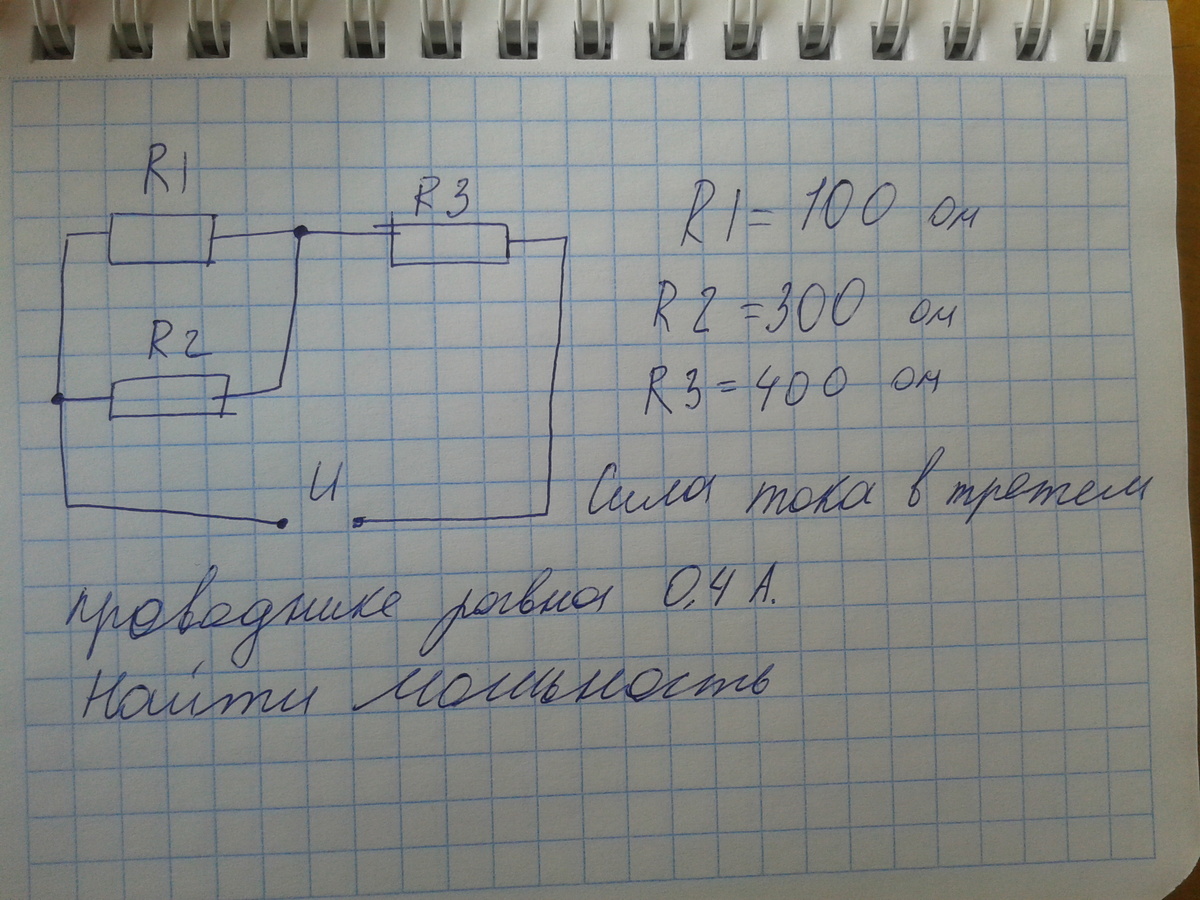 R1
R3
R1 = 100 ом
R2 = 300 ом
R2
R3 = 400 ом
U
Сила тока в третем
проваднике равна 0,4 А.
Найти мощьность